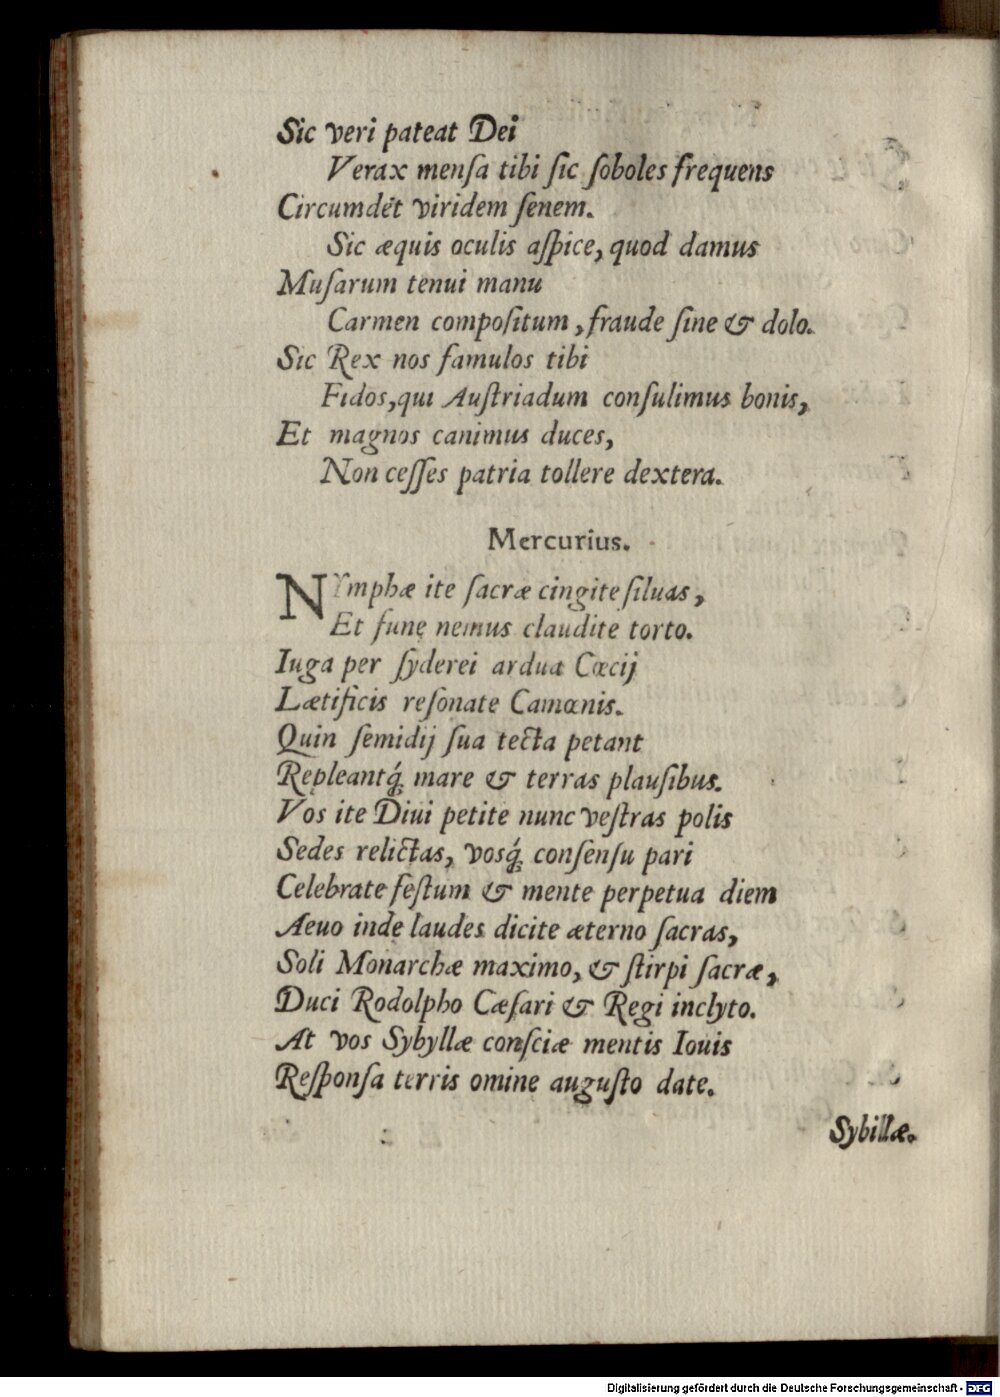 Sic veri pateat Dei
Verax mensa tibi sic soboles frequens
Circumdet viridem senem.
Sic æquis oculis aspice, quod damus
Musarum tenui manu
Carmen compositum, fraude sine & dolo.
Sic Rex nos famulos tibi
Fidos, qui Austriadum consulimus bonis,
Et magnos canimus duces,
Non cesses patria tollere dextera.
Mercurius.
NYmphæ ite sacræ cingite siluas,
Et fune nemus claudite torto.
Iuga per syderei ardua Cœcij
Lætificis resonate Camœnis.
Quin semidij sua tecta petant
Repleantq́; mare & terras plausibus.
Vos ite Diui petite nunc vestras polis
Sedes relictas, vosq́; consensu pari
Celebrate festum & mente perpetua diem
Aeuo inde laudes dicite æterno sacras,
Soli Monarchæ maximo, & stirpi sacræ,
Duci Rodolpho Cæsari & Regi inclyto.
At vos Sybyllæ consciæ mentis Iouis
Responsa terris omine augusto date.
Sybillæ.
Digitalisierung gefördert durch die Deutsche Forschungsgemeinschaft - DFG